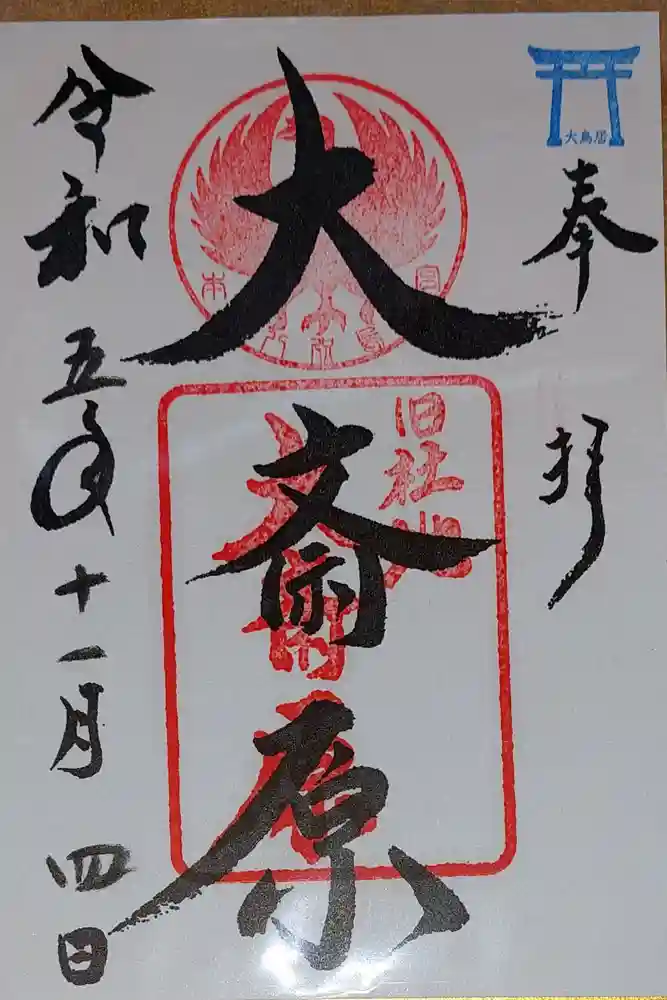 大鳥居
奉拝
大斎原
旧社地
大斎原
令和五年十一月四日